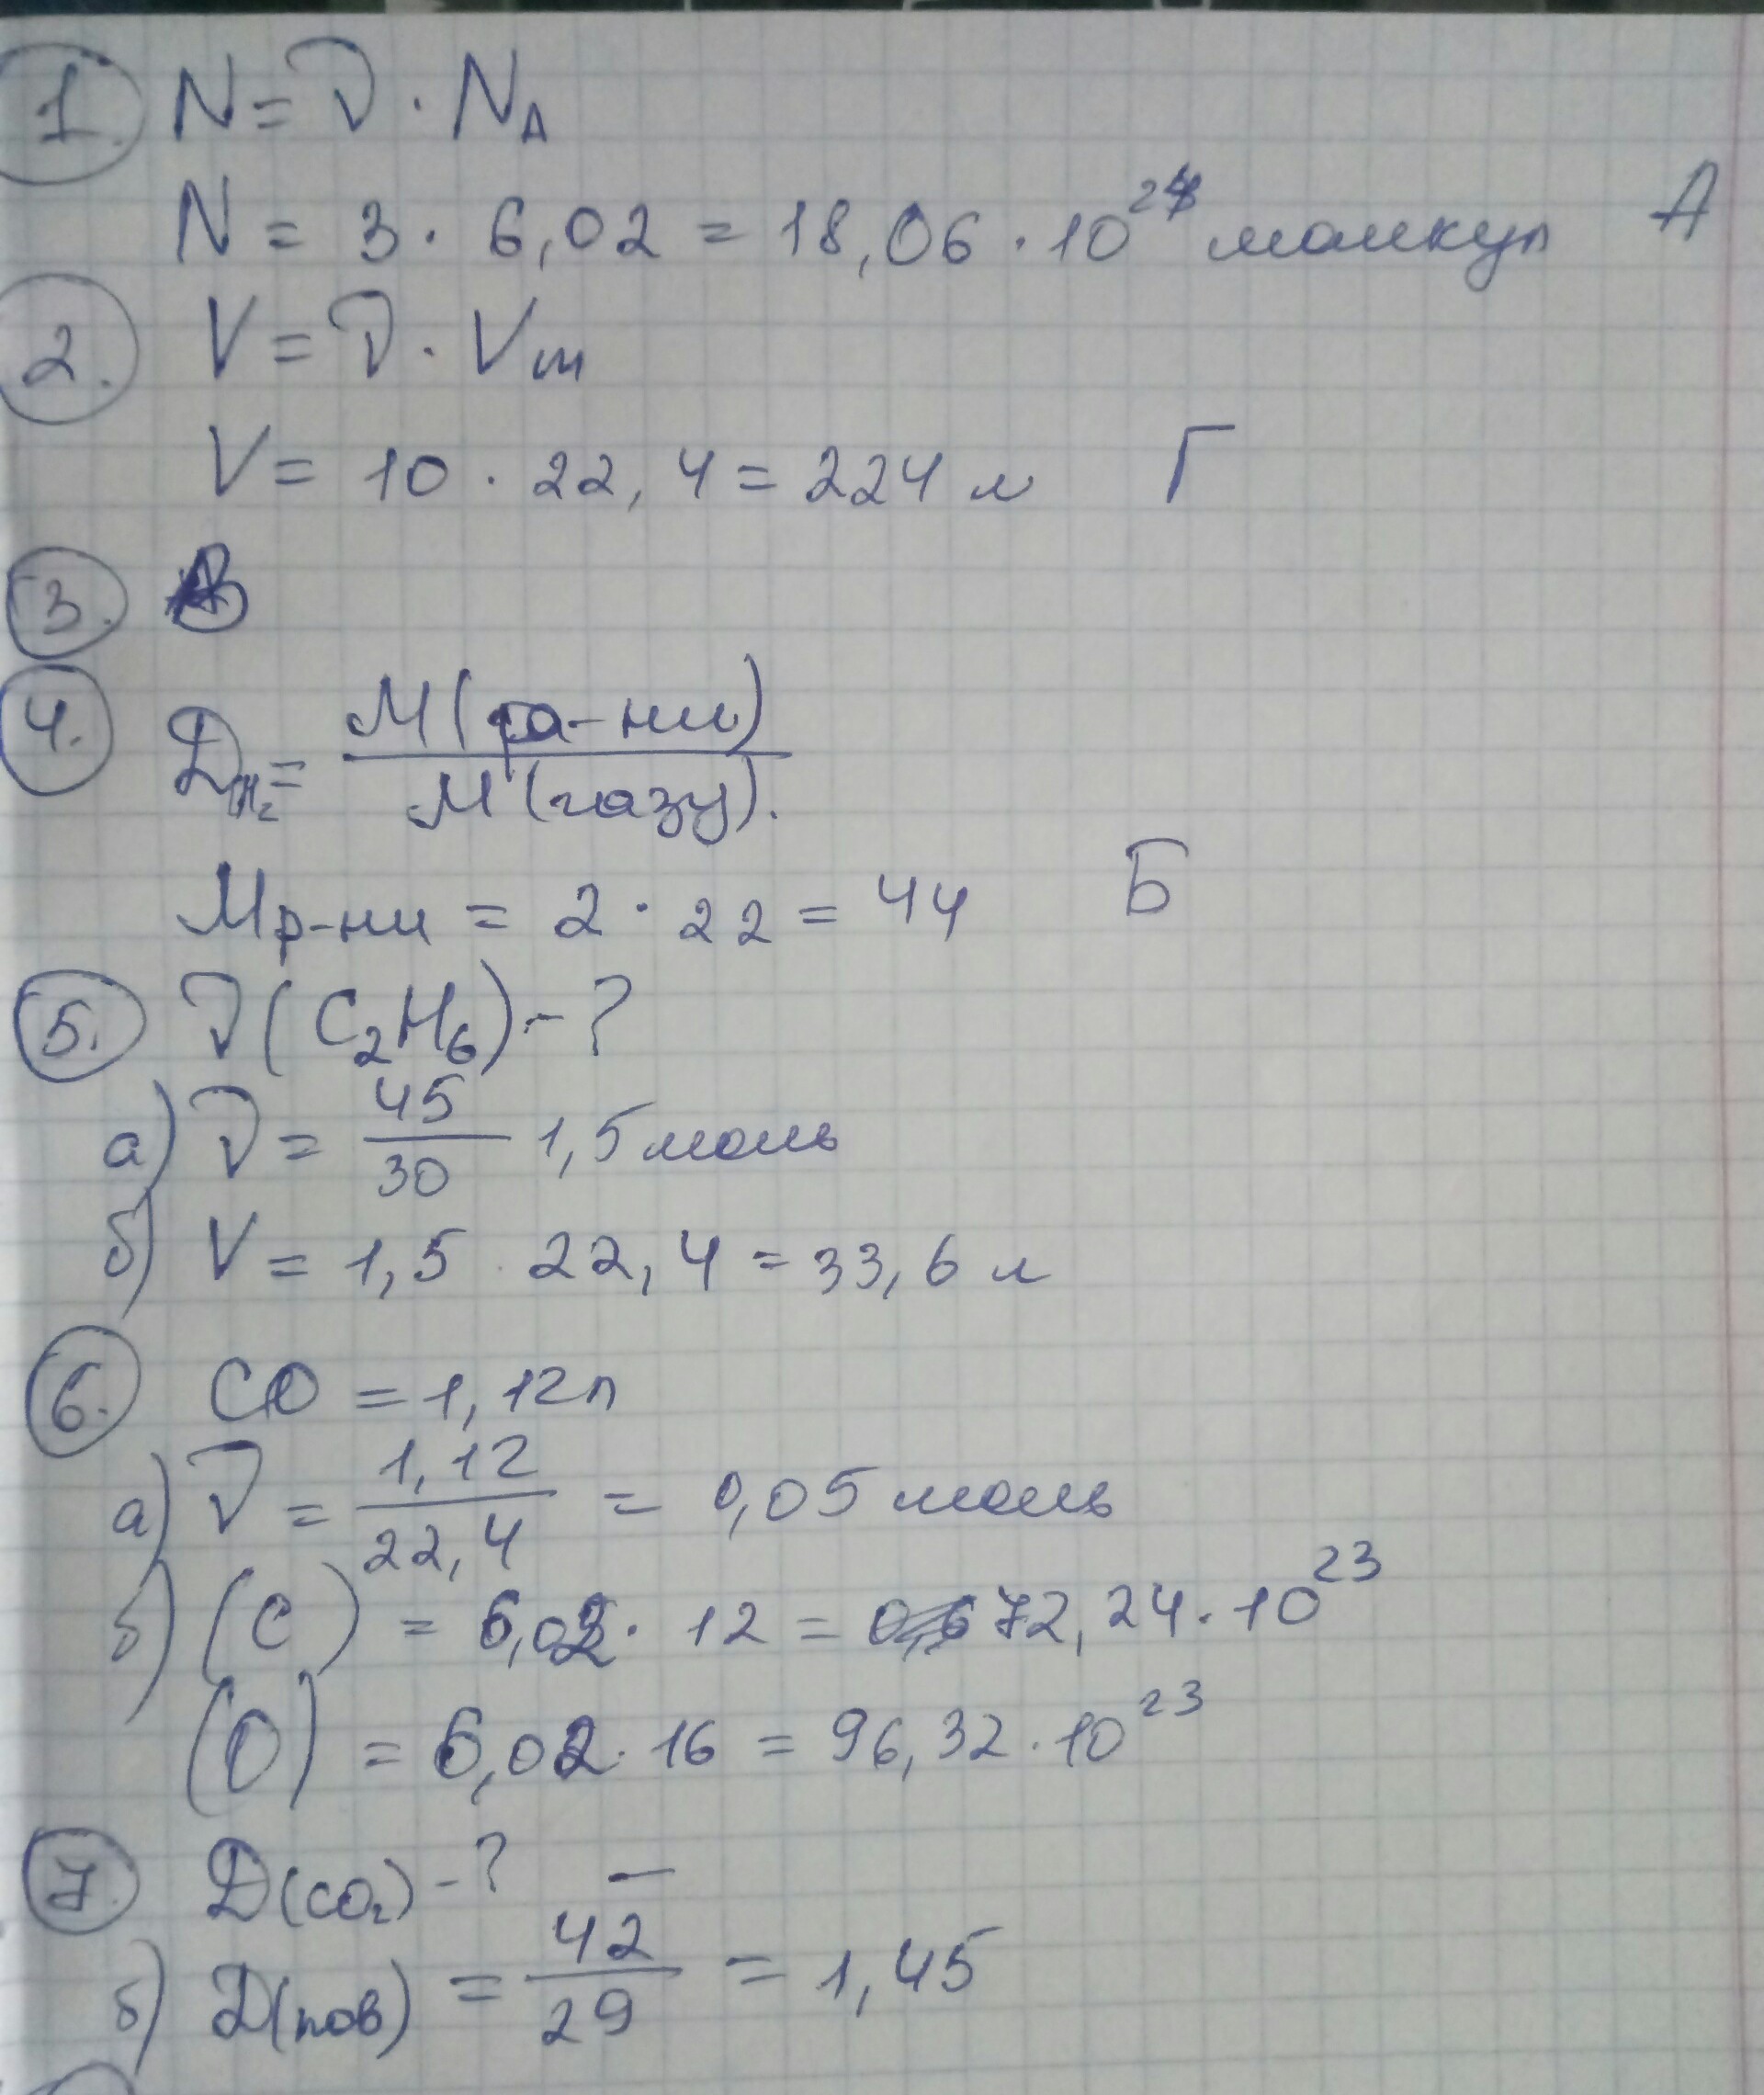 1. N = ν · N_A
N = 3 · 6,02 = 18,06 · 10^23 молкул А
2. V = ν · Vm
V = 10 · 22,4 = 224 л Г
3. В
4. D_H₂ = M(ра-ни) / M(газу).
Mр-ни = 2 · 22 = 44 Б
5. ν(C₂H₆) - ?
а) ν = 45/30 1,5 моль
б) V = 1,5 · 22,4 = 33,6 л
6. CO = 1,12л
а) ν = 1,12/22,4 = 0,05 моль
б) (C) = 6,02 · 12 = 72,24 · 10^23
(O) = 6,02 · 16 = 96,32 · 10^23
7. D(CO₂) - ? —
б) D(пов) = 42/29 = 1,45